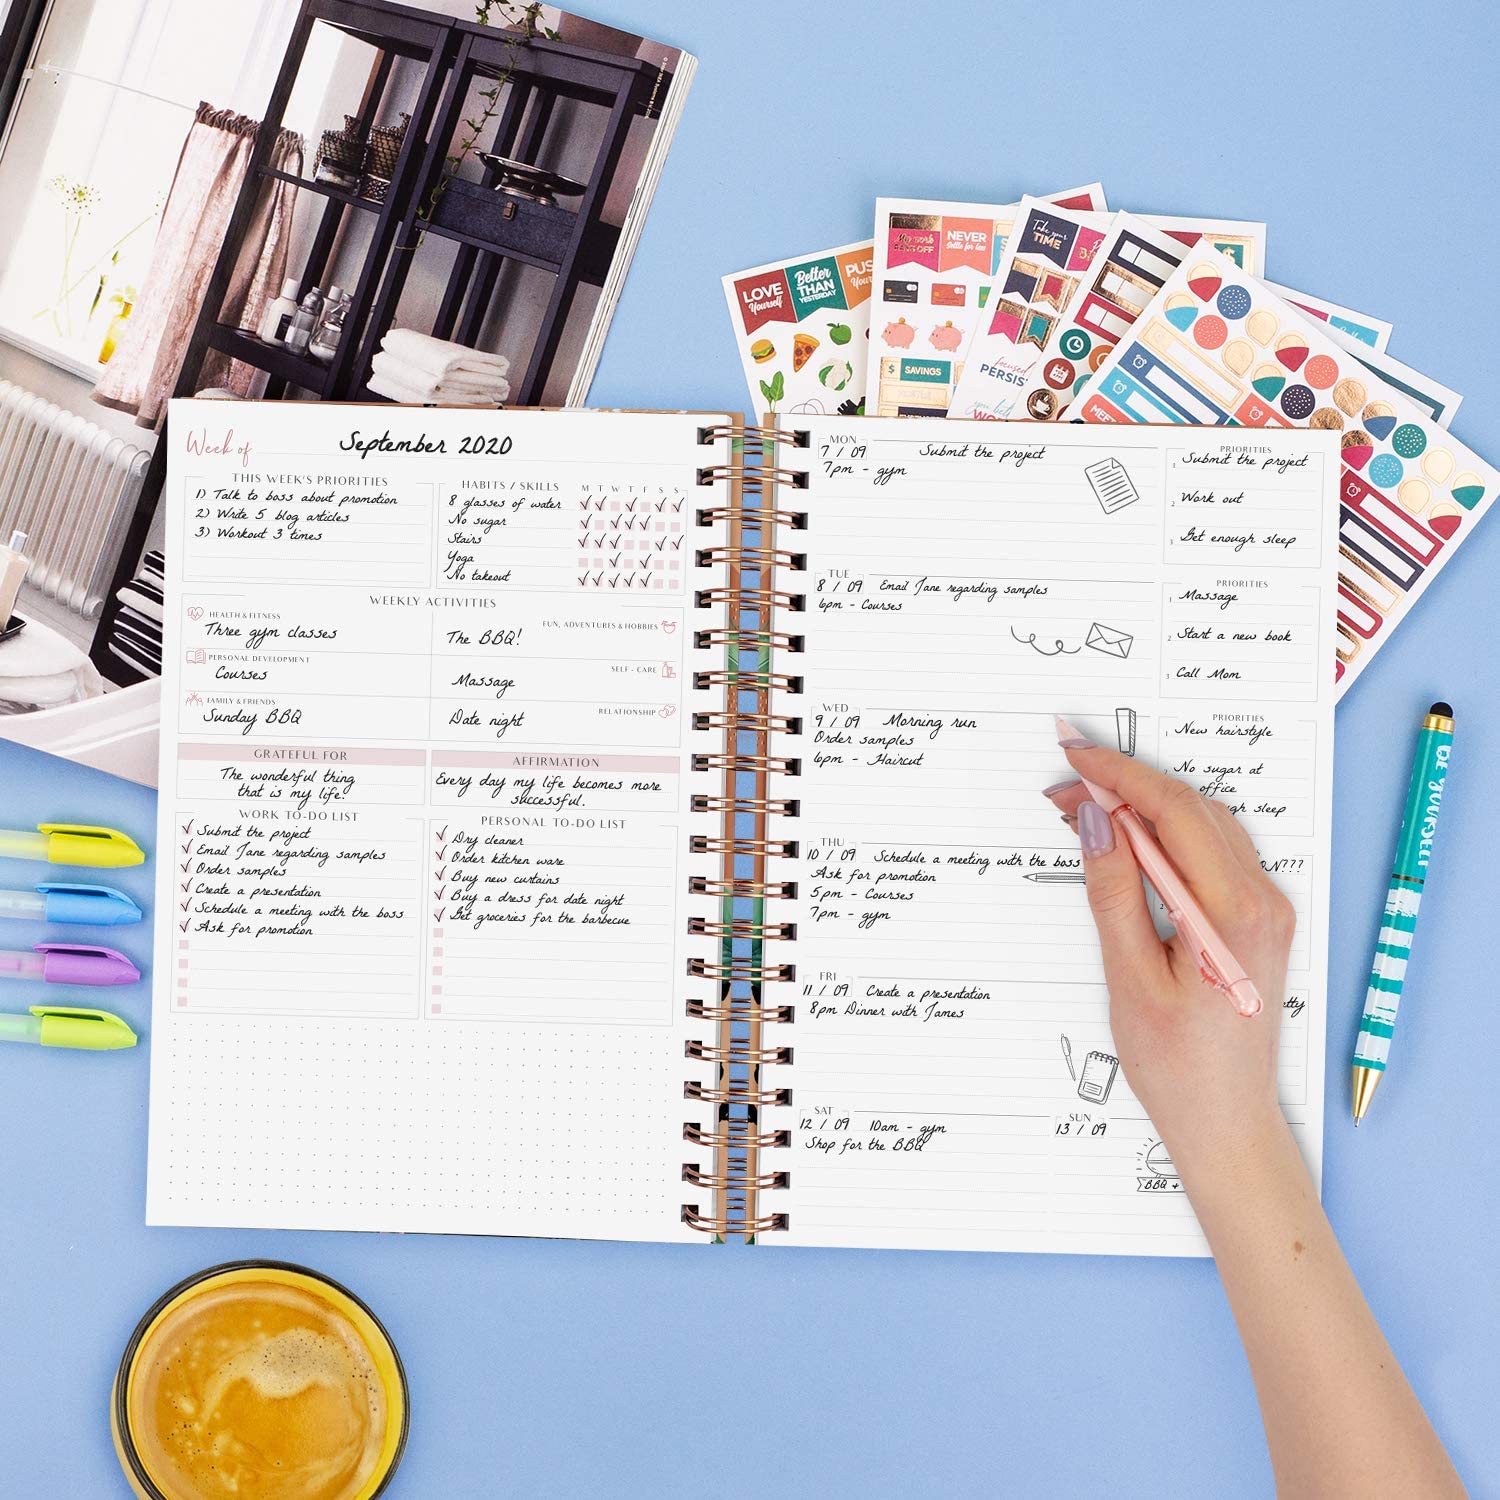 Week of September 2020
THIS WEEK'S PRIORITIES
1) Talk to boss about promotion
2) Write 5 blog articles
3) Workout 3 times
HABITS / SKILLS M T W T F S S
8 glasses of water
No sugar
Stairs
Yoga
No takeout
WEEKLY ACTIVITIES
HEALTH & FITNESS
Three gym classes
FUN, ADVENTURES & HOBBIES
The BBQ!
PERSONAL DEVELOPMENT
Courses
SELF - CARE
Massage
FAMILY & FRIENDS
Sunday BBQ
RELATIONSHIP
Date night
GRATEFUL FOR
The wonderful thing
that is my life!
AFFIRMATION
Every day my life becomes more
successful.
WORK TO-DO LIST
Submit the project
Email Jane regarding samples
Order samples
Create a presentation
Schedule a meeting with the boss
Ask for promotion
PERSONAL TO-DO LIST
Dry cleaner
Order kitchen ware
Buy new curtains
Buy a dress for date night
Get groceries for the barbecue
MON
7 / 09 Submit the project
7pm - gym
PRIORITIES
1. Submit the project
2. Work out
3. Get enough sleep
TUE
8 / 09 Email Jane regarding samples
6pm - Courses
PRIORITIES
1. Massage
2. Start a new book
3. Call Mom
WED
9 / 09 Morning run
Order samples
6pm - Haircut
PRIORITIES
1. New hairstyle
No sugar at
office
gh sleep
THU
10 / 09 Schedule a meeting with the boss
Ask for promotion
5pm - Courses
7pm - gym
ON???
FRI
11 / 09 Create a presentation
8pm Dinner with James
etty
SAT
12 / 09 10am - gym
Shop for the BBQ
SUN
13 / 09
BBQ +
LOVE
Yourself
Better
THAN
YESTERDAY
PUS
Your
NEVER
Settle for less
$ SAVINGS
Take your
TIME
focused
PERSIS
you bett
WO
MEET
Be yourself